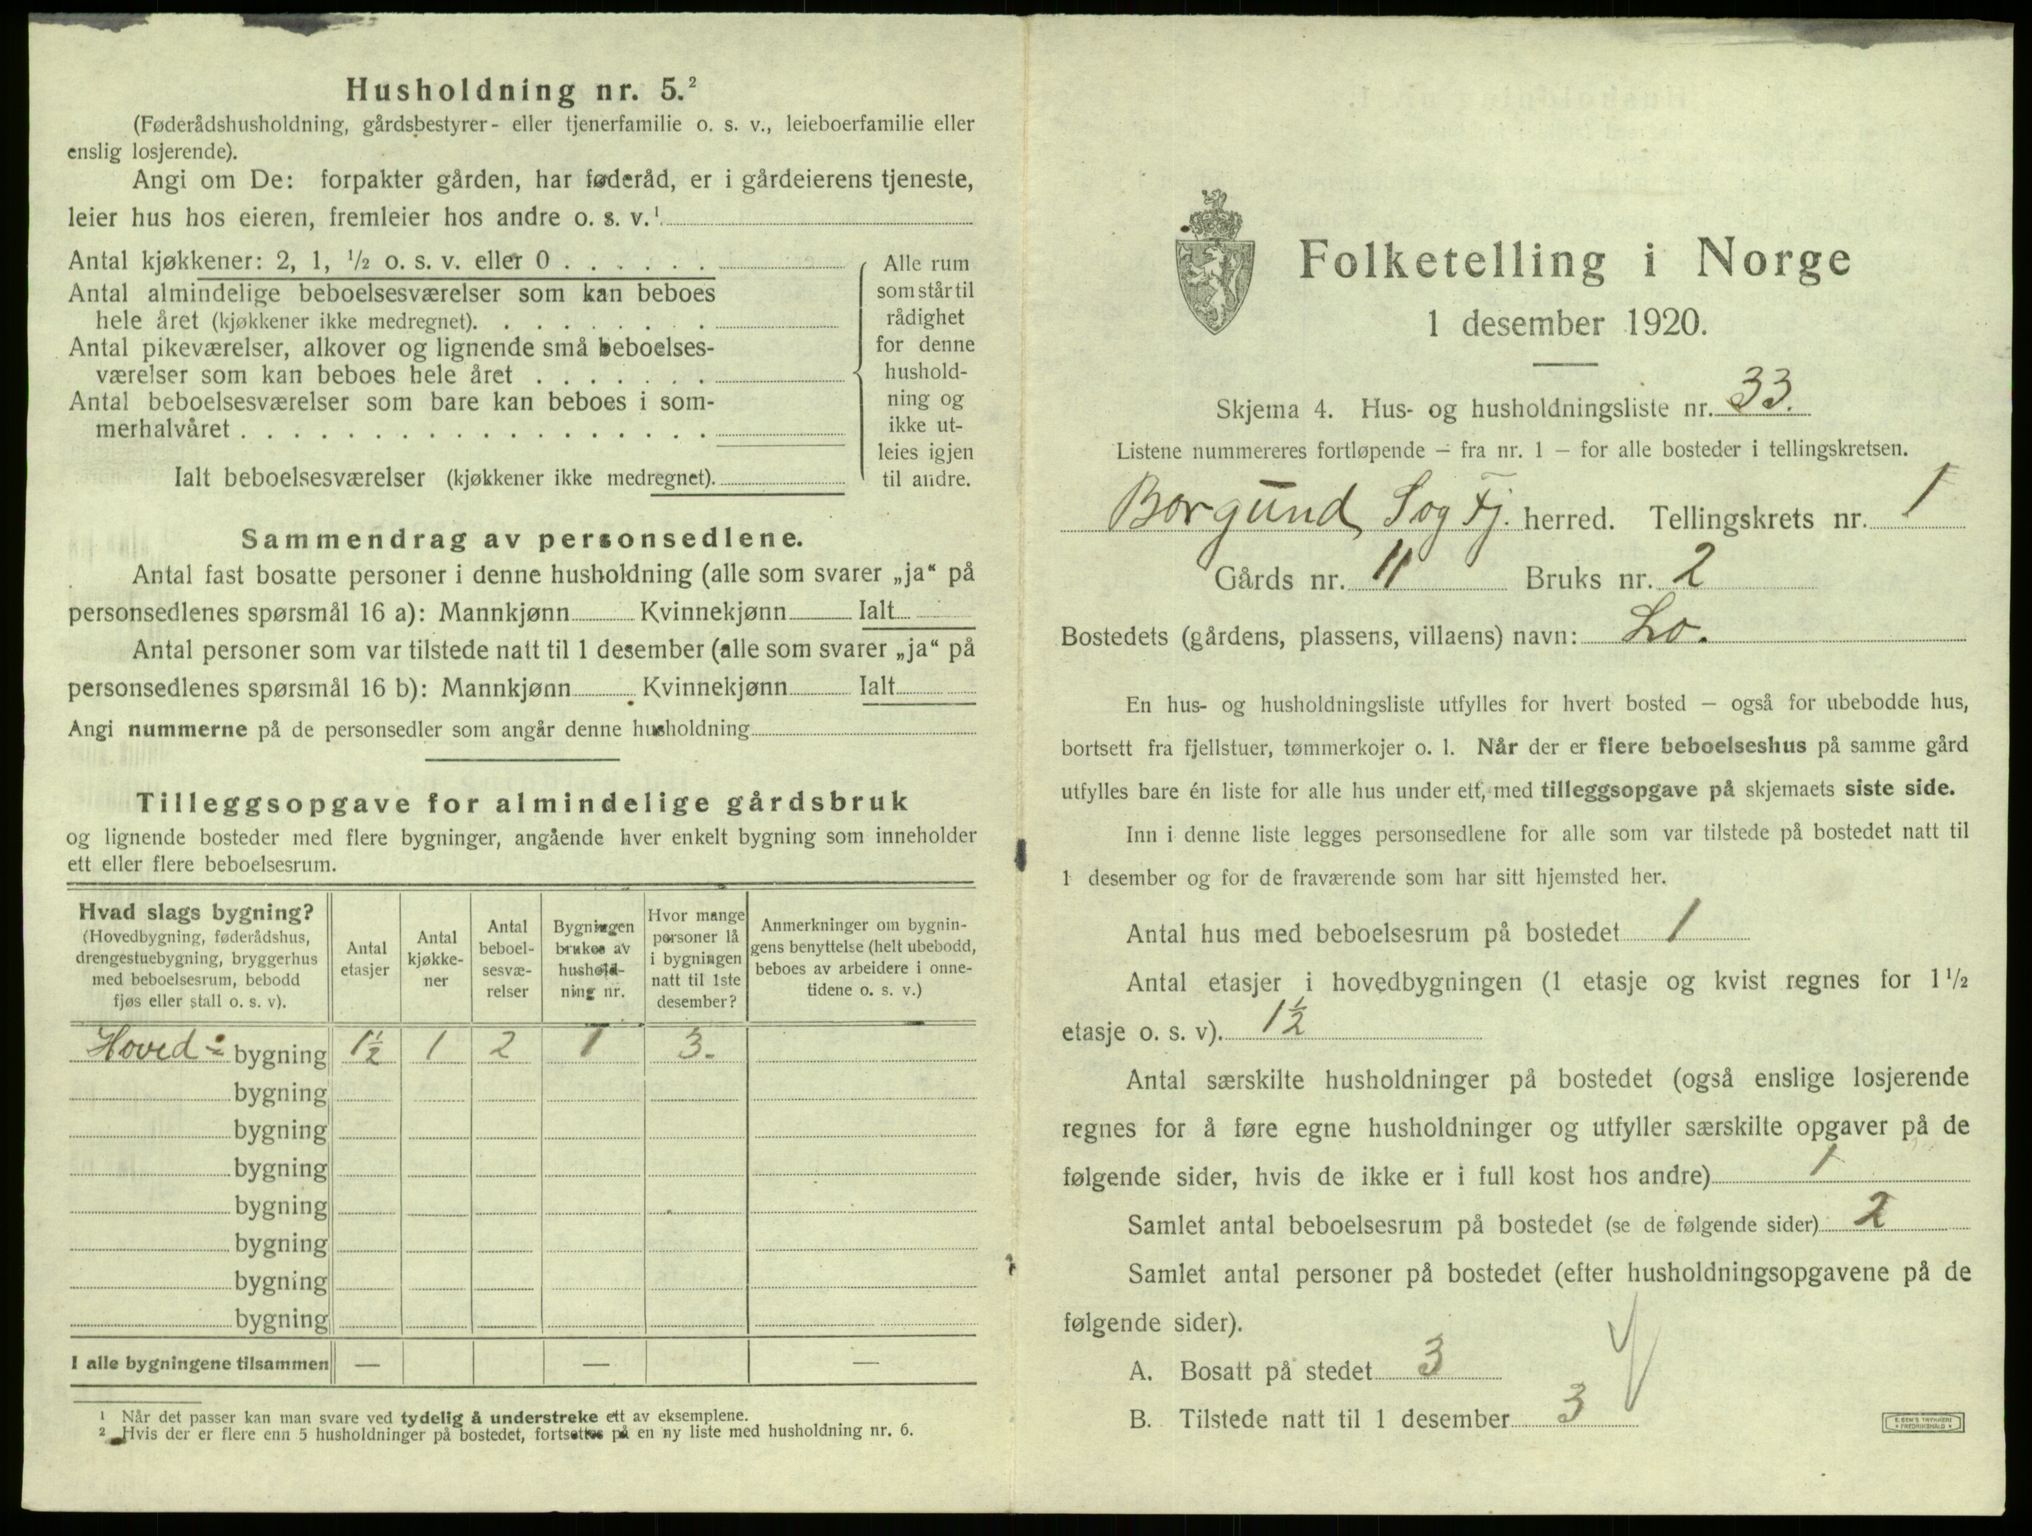 Husholdning nr. 5.²
(Føderådshusholdning, gårdsbestyrer- eller tjenerfamilie o. s. v., leieboerfamilie eller
enslig losjerende).
Angi om De: forpakter gården, har føderåd, er i gårdeierens tjeneste,
leier hus hos eieren, fremleier hos andre o. s. v.¹
Antal kjøkkener: 2, 1, ½ o. s. v. eller 0
Antal almindelige beboelsesværelser som kan beboes
hele året (kjøkkener ikke medregnet).
Antal pikeværelser, alkover og lignende små beboelses-
værelser som kan beboes hele året
Antal beboelsesværelser som bare kan beboes i som-
merhalvåret
Ialt beboelsesværelser (kjøkkener ikke medregnet).
Alle rum
som står til
rådighet
for denne
hushold-
ning og
ikke ut-
leies igjen
til andre.
Sammendrag av personsedlene.
Antal fast bosatte personer i denne husholdning (alle som svarer „ja“ på
personsedlenes spørsmål 16 a): Mannkjønn Kvinnekjønn Ialt
Antal personer som var tilstede natt til 1 desember (alle som svarer „ja“ på
personsedlenes spørsmål 16 b): Mannkjønn Kvinnekjønn Ialt
Angi nummerne på de personsedler som angår denne husholdning
Tilleggsopgave for almindelige gårdsbruk
og lignende bosteder med flere bygninger, angående hver enkelt bygning som inneholder
ett eller flere beboelsesrum.
Hvad slags bygning?
(Hovedbygning, føderådshus,
drengestuebygning, bryggerhus
med beboelsesrum, bebodd
fjøs eller stall o. s. v).
Antal
etasjer
Antal
kjøkke-
ner
Antal
beboel-
sesvæ-
relser
Bygningen
brukes av
hushold-
ning nr.
Hvor mange
personer lå
i bygningen
natt til 1ste
desember?
Anmerkninger om bygnin-
gens benyttelse (helt ubebodd,
beboes av arbeidere i onne-
tidene o. s. v.)
Hoved- bygning 1½ 1 2 1 3.
bygning
bygning
bygning
bygning
bygning
bygning
bygning
I alle bygningene tilsammen — — —
¹ Når det passer kan man svare ved tydelig å understreke ett av eksemplene.
² Hvis der er flere enn 5 husholdninger på bostedet, fortsettes på en ny liste med husholdning nr. 6.
Folketelling i Norge
1 desember 1920.
Skjema 4. Hus- og husholdningsliste nr. 33.
Listene nummereres fortløpende – fra nr. 1 – for alle bosteder i tellingskretsen.
Borgund, Sog Fj. herred. Tellingskrets nr. 1
Gårds nr. 11 Bruks nr. 2
Bostedets (gårdens, plassens, villaens) navn: Lo.
En hus- og husholdningsliste utfylles for hvert bosted – også for ubebodde hus,
bortsett fra fjellstuer, tømmerkojer o. l. Når der er flere beboelseshus på samme gård
utfylles bare én liste for alle hus under ett, med tilleggsopgave på skjemaets siste side.
Inn i denne liste legges personsedlene for alle som var tilstede på bostedet natt til
1 desember og for de fraværende som har sitt hjemsted her.
Antal hus med beboelsesrum på bostedet 1
Antal etasjer i hovedbygningen (1 etasje og kvist regnes for 1½
etasje o. s. v). 1½
Antal særskilte husholdninger på bostedet (også enslige losjerende
regnes for å føre egne husholdninger og utfyller særskilte opgaver på de
følgende sider, hvis de ikke er i full kost hos andre) 1
Samlet antal beboelsesrum på bostedet (se de følgende sider) 2
Samlet antal personer på bostedet (efter husholdningsopgavene på de
følgende sider).
A. Bosatt på stedet 3
B. Tilstede natt til 1 desember 3